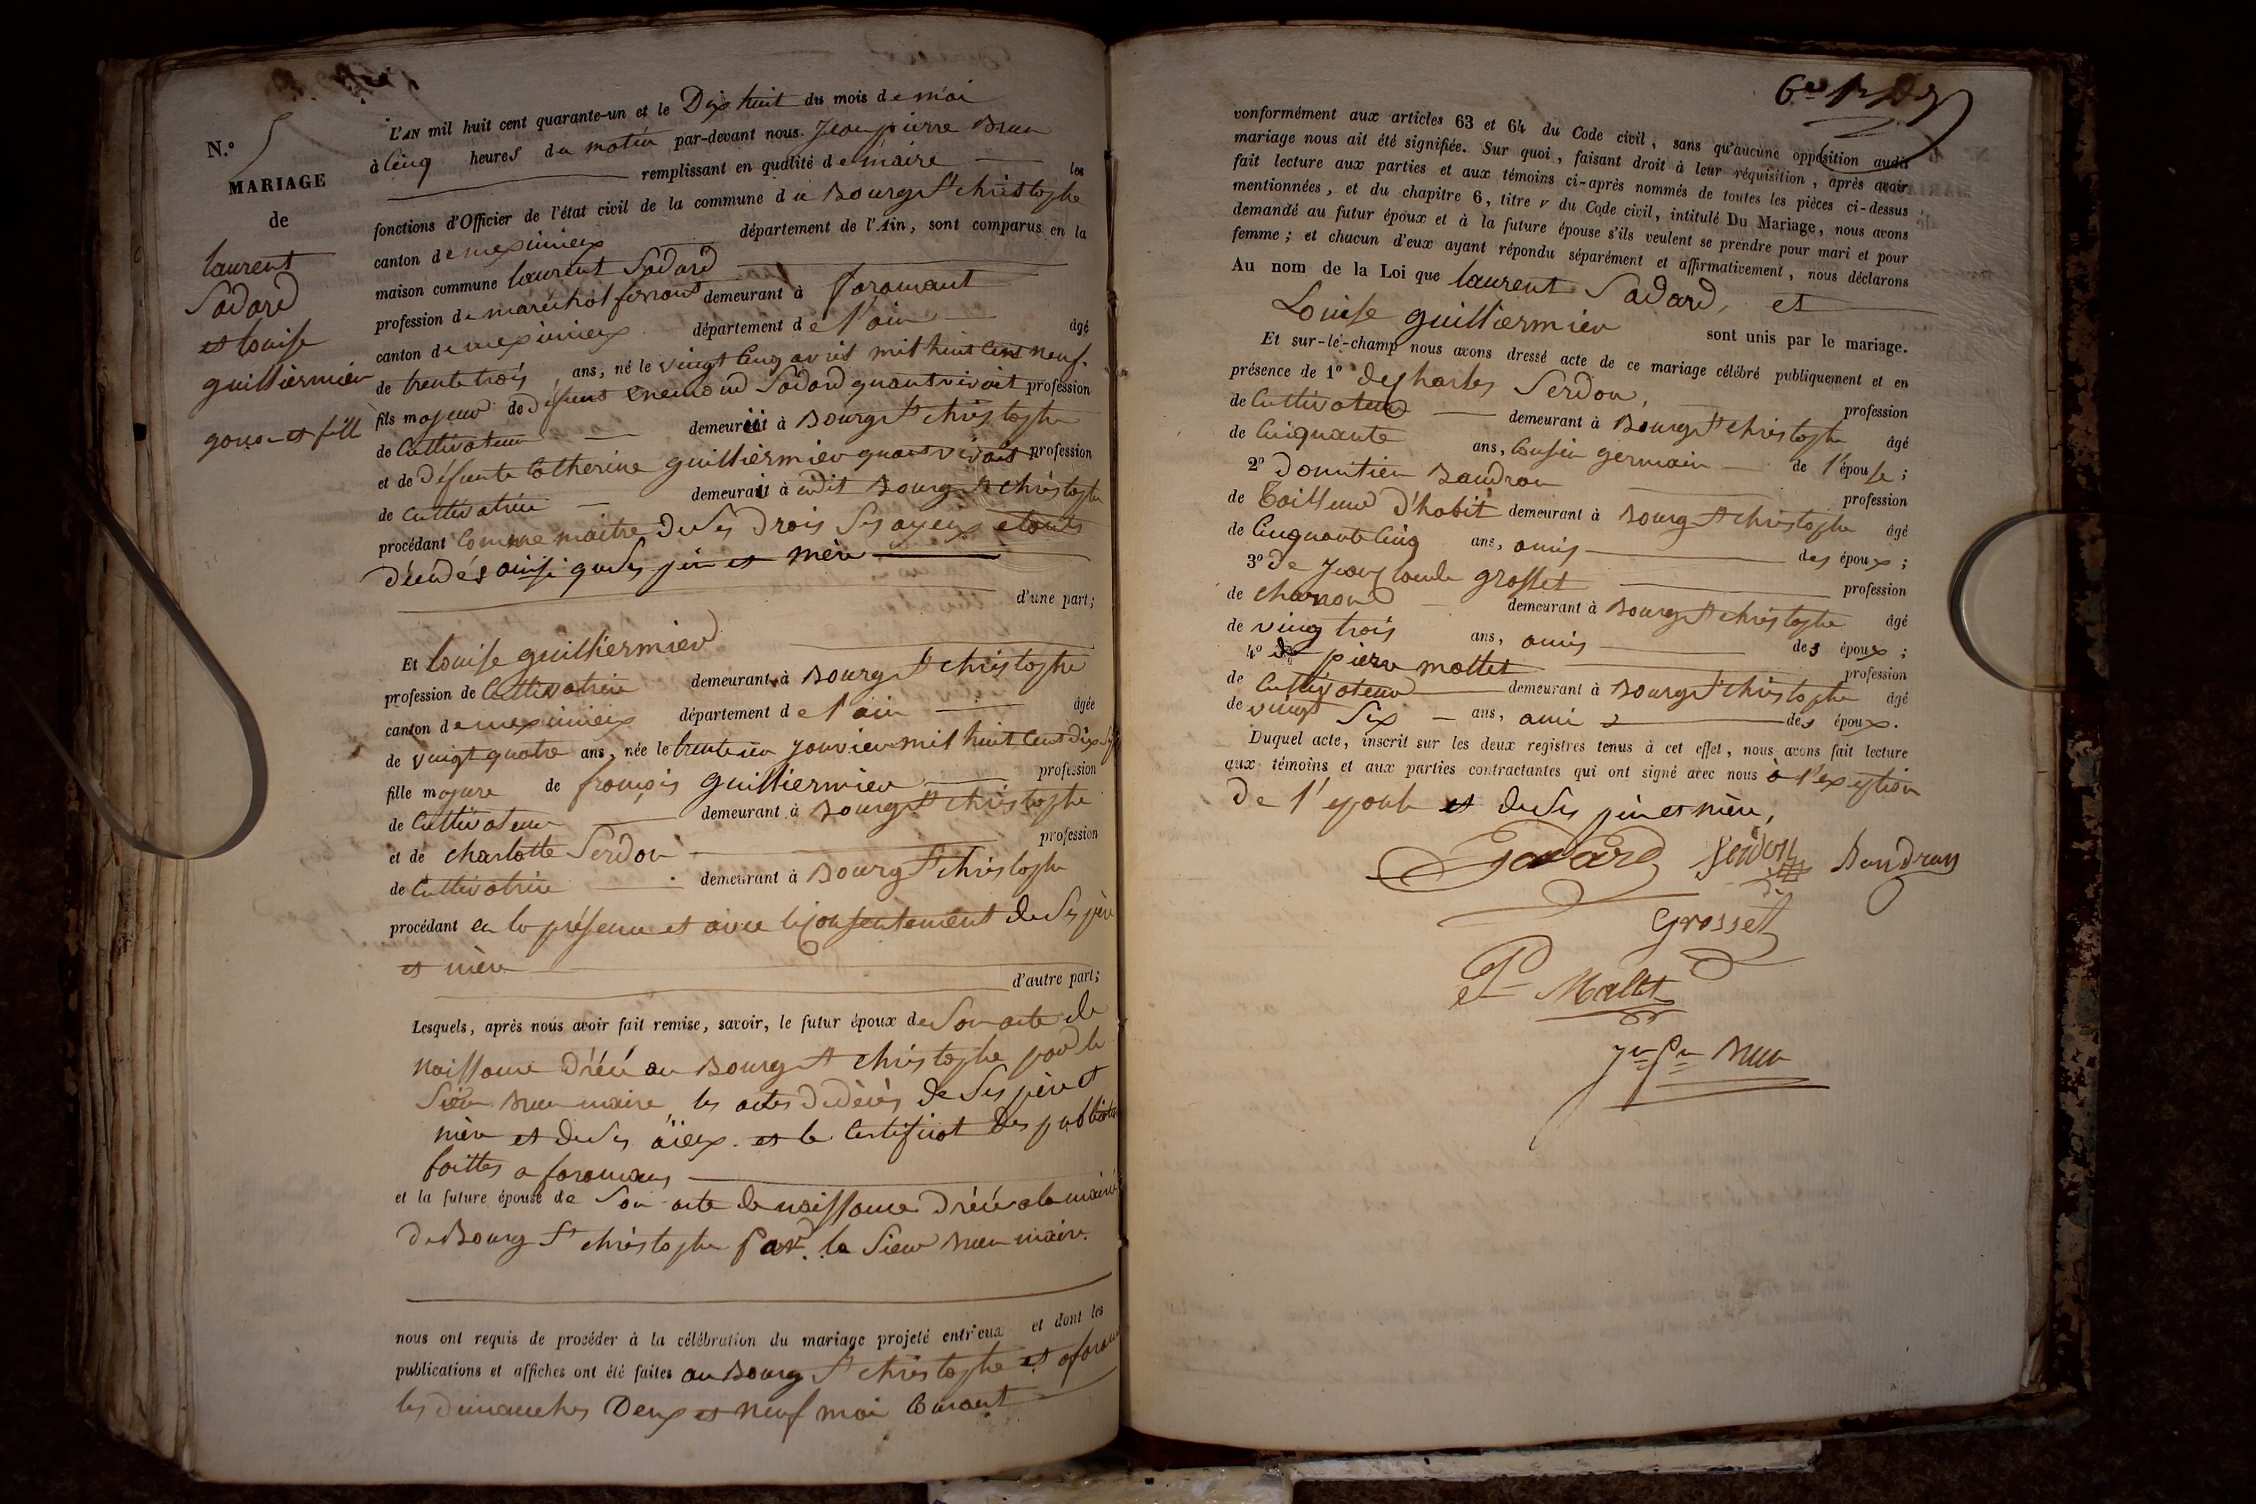 N.° 5
MARIAGE
de
laurent
Sadard
et louise
guilliermier
garçon et fille
L'AN mil huit cent quarante-un et le Dix huit du mois de mai
à Cinq heures du matin par-devant nous Jean pierre Brun
remplissant en qualité de maire les
fonctions d'Officier de l'état civil de la commune du Bourg St christophe
canton de meximieux département de l'Ain, sont comparus en la
maison commune laurent Sadard
profession de maréchal ferrant demeurant à faramant
canton de meximieux département de l'ain âgé
de trente trois ans, né le vingt Cinq avril mil huit Cent neuf
fils majeur de défunt Enemond Sadard quant vivait profession
de Cultivateur demeurant à Bourg St christophe
et de défunte Catherine guilliermier quant vivait profession
de Cultivatrice demeurant à udit Bourg St christophe
procédant Comme maitre de Ses Drois Ses ayeux etants
décédés ainsi que Ses père et mère
d'une part;
Et louise guilliermier
profession de Cultivatrice demeurant à Bourg St christophe
canton de meximieux département de l'ain âgée
de vingt quatre ans, née le trente un janvier mil huit Cent dix Sept
fille majeure de françois guilliermier profession
de Cultivateur demeurant à Bourg St christophe
et de charlotte Serdon profession
de Cultivatrice demeurant à Bourg St christophe
procédant en la présence et avec le Consentement de Ses père
et mère
d'autre part;
Lesquels, après nous avoir fait remise, savoir, le futur époux de Son acte de
naissance Dréce au Bourg St christophe par le
Sieur Brun maire les actes de décès de Ses père et
mère et de Ses aïeux et le Certificat des publications
faittes a faramans
et la future épouse de Son acte de naissance Dréce a la mairie
de Bourg St christophe par le Sieur Brun maire.
nous ont requis de procéder à la célébration du mariage projeté entr'eux et dont les
publications et affiches ont été faites au Bourg St christophe et a faramans
les dimanches Deux et neuf mai Courant
vonformément aux articles 63 et 64 du Code civil, sans qu'aucune opposition audit
mariage nous ait été signifiée. Sur quoi, faisant droit à leur réquisition, après avoir
fait lecture aux parties et aux témoins ci-après nommés de toutes les pièces ci-dessus
mentionnées, et du chapitre 6, titre v du Code civil, intitulé Du Mariage, nous avons
demandé au futur époux et à la future épouse s'ils veulent se prendre pour mari et pour
femme; et chacun d'eux ayant répondu séparément et affirmativement, nous déclarons
Au nom de la Loi que laurent Sadard, et
Louise guilliermier sont unis par le mariage.
Et sur-le-champ nous avons dressé acte de ce mariage célébré publiquement et en
présence de 1° de Charles Serdon, profession
de Cultivateur demeurant à Bourg St christophe âgé
de Cinquante ans, Cousin germain de l'épouse;
2° Donutien Baudran profession
de Tailleur D'habit demeurant à Bourg St christophe âgé
de Cinquante Cinq ans, amis des époux;
3° de Jean Claude grosset profession
de charron demeurant à Bourg St christophe âgé
de vingt trois ans, amis des époux;
4° de pierre mollet profession
de Cultivateur demeurant à Bourg St christophe âgé
de vingt Six ans, ami des époux.
Duquel acte, inscrit sur les deux registres tenus à cet effet, nous avons fait lecture
aux témoins et aux parties contractantes qui ont signé avec nous à l'exeption
De l'epouse et de Ses père et mère,
Sadard Serdon Baudran
Grosset
P Mallet
Jn Pre Brun